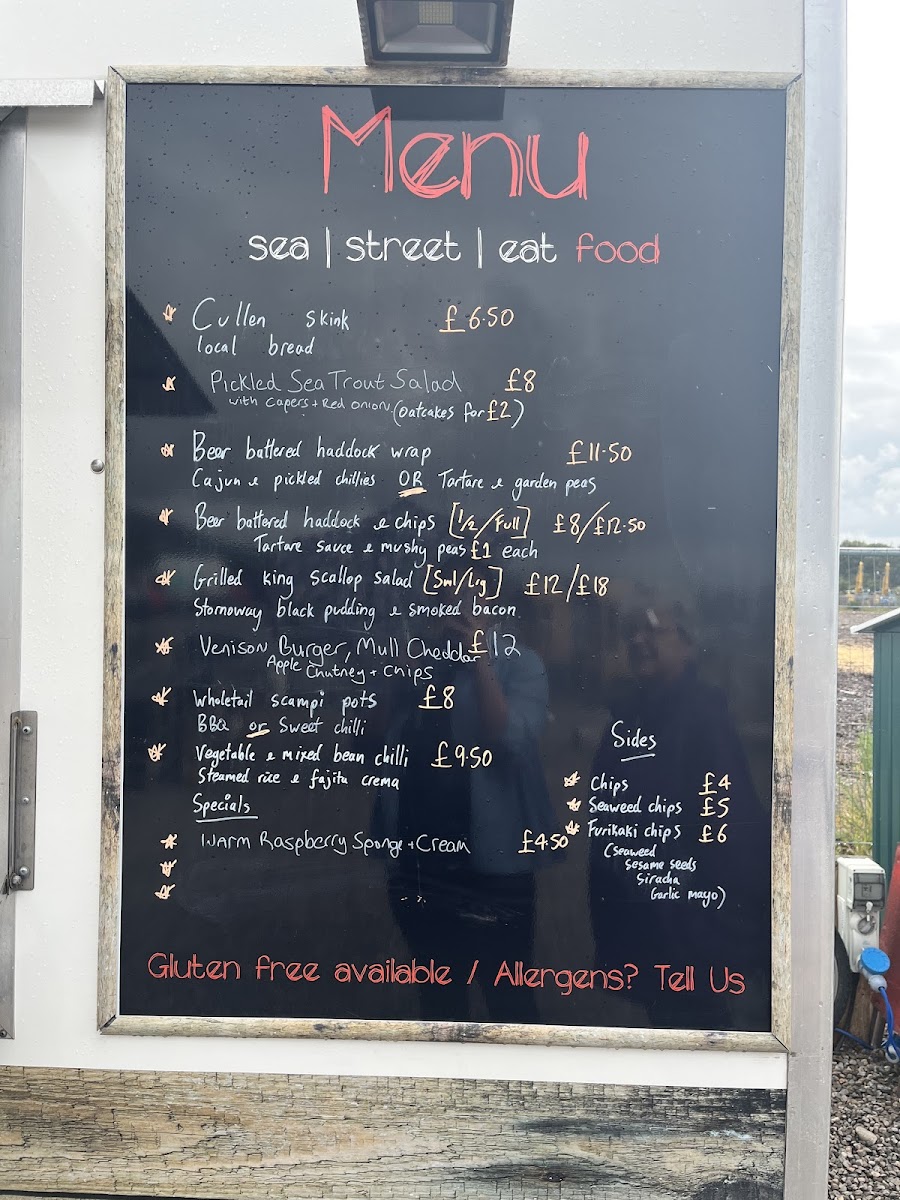 Menu
sea | street | eat food
Cullen skink £6.50
local bread
Pickled Sea Trout Salad £8
with Capers + Red Onion (Oatcakes for £2)
Beer battered haddock wrap £11.50
Cajun & pickled chillies OR Tartare & garden peas
Beer battered haddock & chips [1/2/Full] £8/£12.50
Tartare sauce & mushy peas £1 each
Grilled king scallop salad [Sml/Lrg] £12/£18
Stornoway black pudding & smoked bacon
Venison Burger, Mull Cheddar £12
Apple Chutney + Chips
Wholetail scampi pots £8
BBQ or Sweet chilli
Vegetable & mixed bean chilli £9.50
Steamed rice & fajita crema
Specials
Warm Raspberry Sponge + Cream £4.50
Sides
Chips £4
Seaweed chips £5
Furikaki chips £6
(Seaweed
Sesame seeds
Siracha
Garlic mayo)
Gluten free available / Allergens? Tell Us